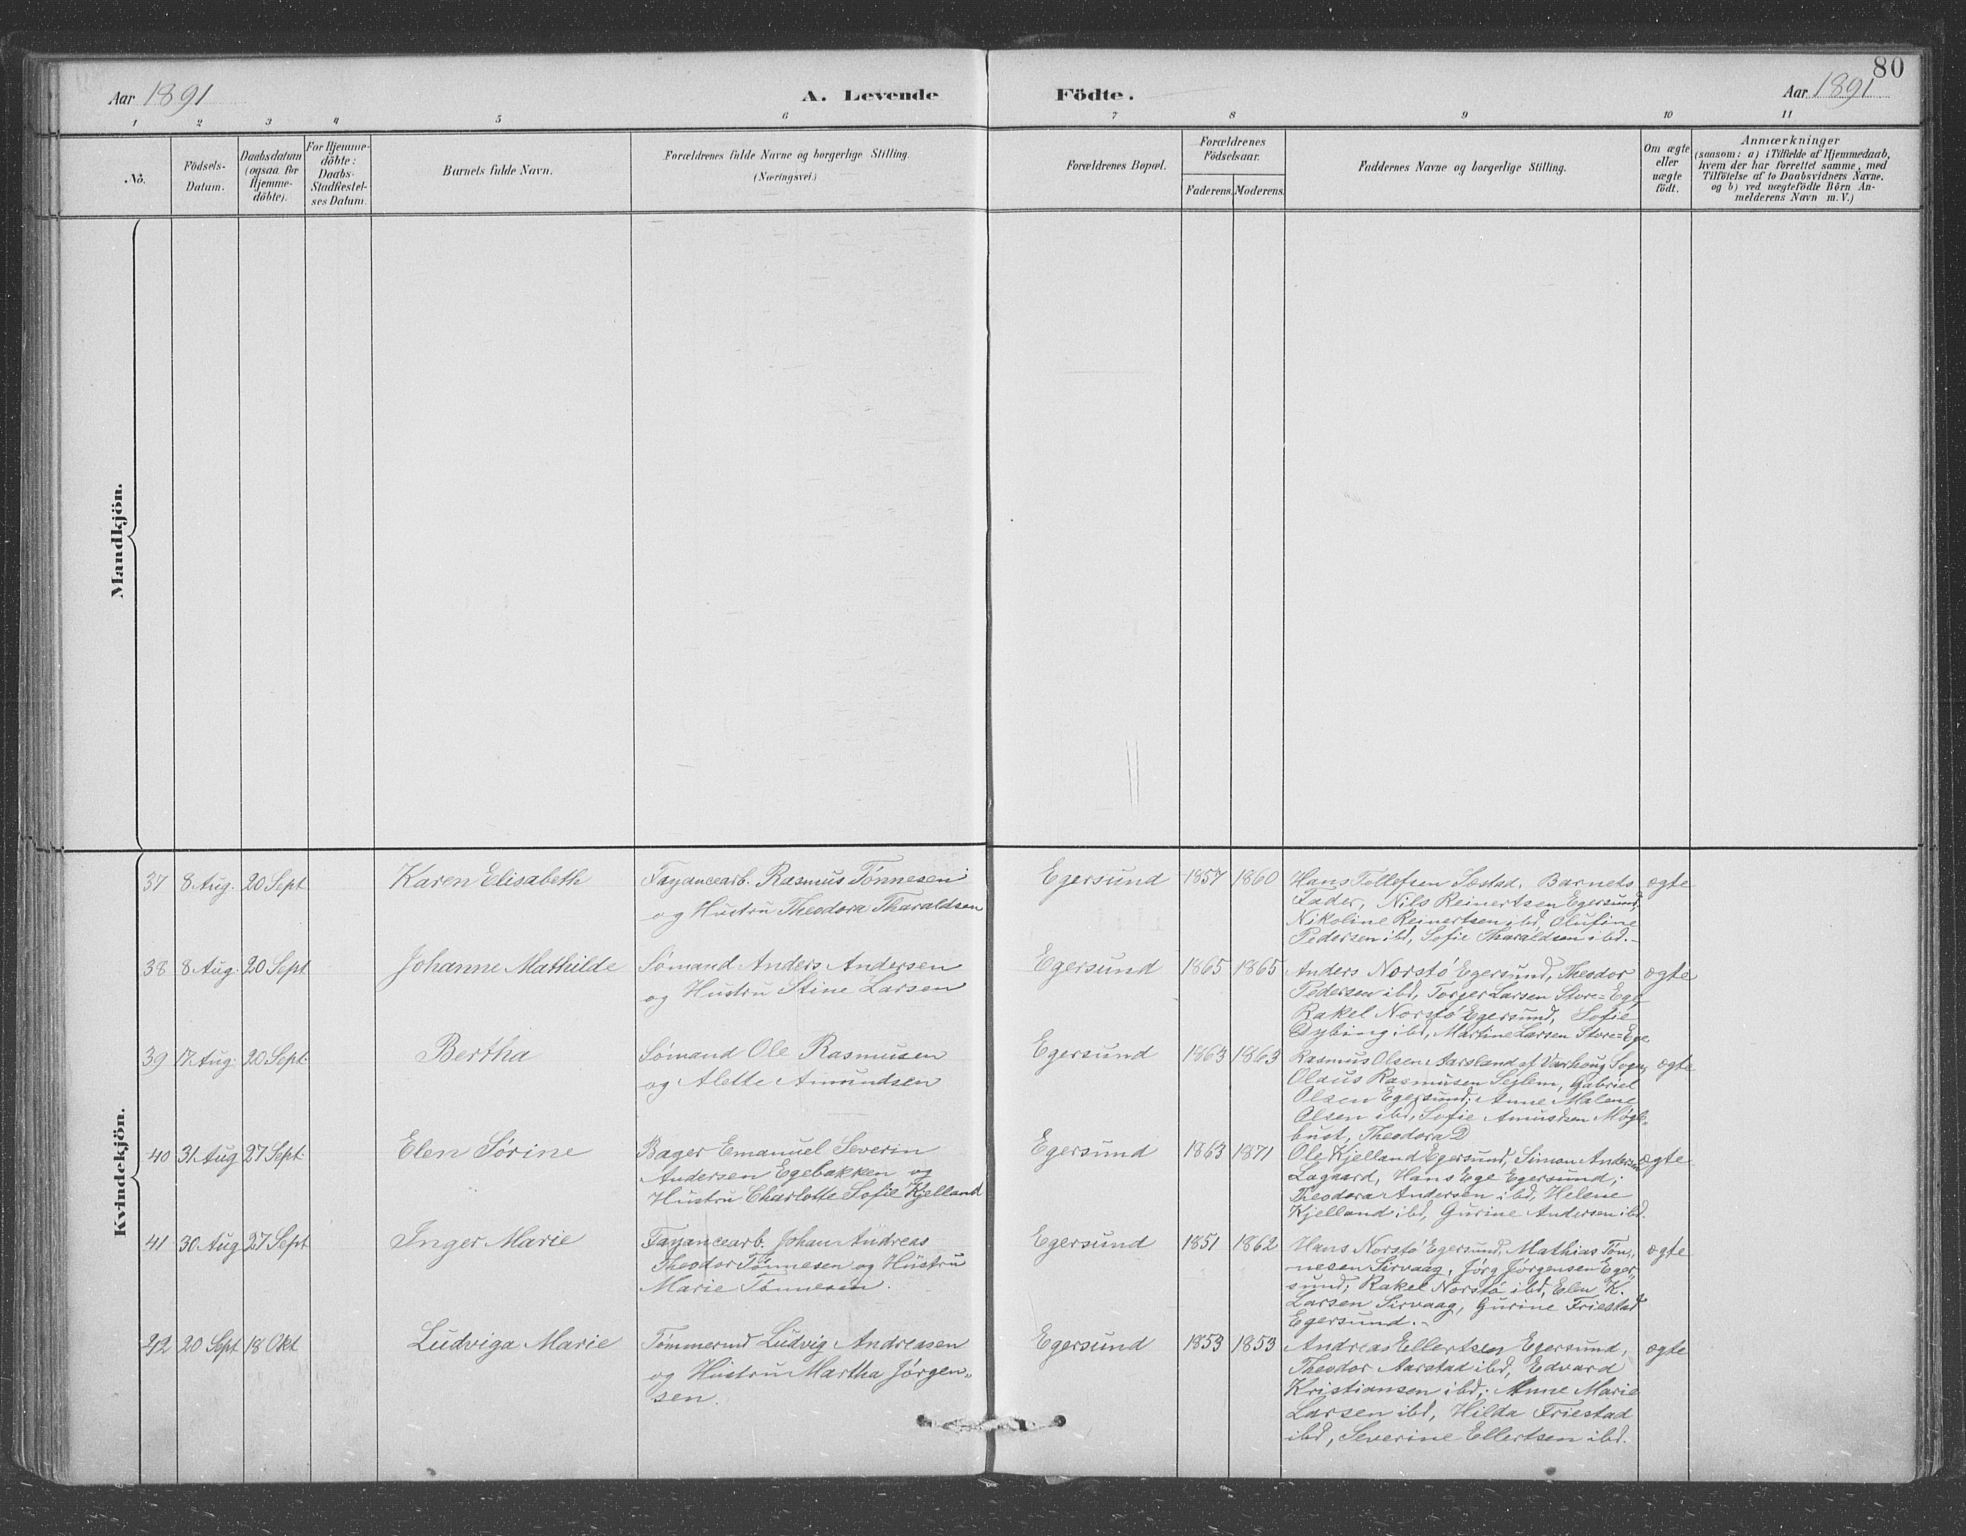 80
Aar 1891
A. Levende Födte.
Aar 1891
1 2 3 4 5 6 7 8 9 10 11
No.
Födsels-
Datum.
Daabsdatum
(ogsaa for
Hjemme-
döbte).
For Hjemme-
döbte:
Daabs-
Stadfæstel-
ses Datum.
Barnets fulde Navn.
Forældrenes fulde Navne og borgerlige Stilling.
(Næringsvei.)
Forældrenes Bopæl.
Forældrenes
Födselsaar.
Faderens. Moderens.
Faddernes Navne og borgerlige Stilling.
Om ægte
eller
uægte
födt.
Anmærkninger
(saasom: a) i Tilfælde af Hjemmedaab,
hvem der har forrettet samme, med
Tilföielse af to Daabsvidners Navne.
og b) ved uægtefödte Börn An-
melderens Navn m. V.)
Mandkjön.
Kvindekjön.
37 8 Aug. 20 Sept
Karen Elisabeth
Fayancearb. Rasmus Tønnesen
og Hustru Theodora Tharaldsen
Egersund 1857 1860
Hans Tollefsen Sæstad, Barnets
Fader, Nils Reinertsen Egersund,
Nikoline Reinertsen ibd, Olufine
Pedersen ibd, Sofie Tharaldsen ibd.
ægte
38 8 Aug. 20 Sept
Johanne Mathilde
Sømand Anders Andersen
og Hustru Stine Larsen
Egersund 1865 1865
Anders Norstø Egersund, Theodor
Pedersen ibd, Torger Larsen Store=Ege
Rakel Norstø Egersund, Sofie
Dybing ibd, Martine Larsen Store=Ege
ægte
39 17 Aug. 20 Sept.
Bertha
Sømand Ole Rasmusen
og Alette Amundsen
Egersund 1863 1863
Rasmus Olsen Aarsland af Varhoug Sogn,
Olaus Rasmusen Sejlem, Gabriel
Olsen Egersund, Anne Malene
Olsen ibd, Sofie Amundsen Møgle-
bust, Theodora D
ægte
40 31. Aug 27 Sept.
Elen Sørine
Bager Emanuel Severin
Andersen Egebakken og
Hustru Charlotte Sofie Kjelland
Egersund 1863 1871
Ole Kjelland Egersund, Simon Andersen
Lagaard, Hans Ege Egersund,
Theodora Andersen ibd, Helene
Kjelland ibd, Gurine Andersen ibd.
ægte
41 30. Aug 27 Sept
Inger Marie
Fayancearb. Johan Andreas
Theodor Tønnesen og Hustru
Marie Tønnesen.
Egersund 1851 1862
Hans Norstø Egersund, Mathias Tøn-
nesen Sirvaag, Jørg Jørgensen Eger-
sund, Rakel Norstø ibd, Elen K.
Larsen Sirvaag, Gurine Friestad
Egersund.
ægte
42 20 Sept 18 Okt
Ludviga Marie
Tømmermd Ludvig Andreasen
og Hustru Martha Jørgen-
sen.
Egersund 1853 1853
Andreas Ellertsen Egersund,
Theodor Aarstad ibd, Edvard
Kristiansen ibd, Anne Marie
Larsen ibd, Hilda Friestad
ibd, Severine Ellertsen ibd.
ægte